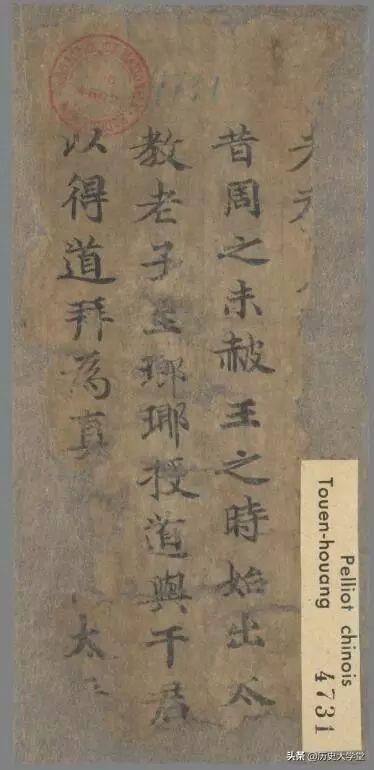 4731
昔周之末赧王之時始出太
教老子至瑯耶授道與干君
以得道拜為真 太
Pelliot chinois
Touen-houang
4731
头条 @历史大学堂